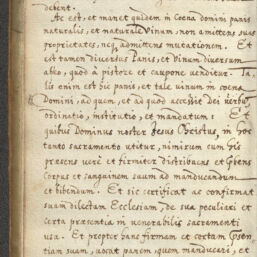 debent.
Ac est, et manet quidem in Coena domini panis
naturalis, et naturale Vinum, non amittens suas
proprietates, neq; admittens mutationem. Et
est tamen diversus Panis, et Vinum diversum
ab eo, quod à pistore et caupone venditur. Ta-
lis enim est hic panis, et tale vinum in coena
Domini, ad quem, et ad quod accessit Dei verbũ,
ordinatio, institutio, et mandatum: Et
quibus Dominus noster Jesus Christus, in hoc
tanto sacramento utitur, nimirum cum his
praesens vere et firmiter distribuens et
Corpus et sanguinem suum ad manducandum
et bibendum. Et sic certificat ac confirmat
suam dilectam Ecclesiam, de sua peculiari et
certa praesentia in venerabilis sacramenti
usu. Et propter hanc firmam et certam
tiam suam, vocat panem, quem manducari, et